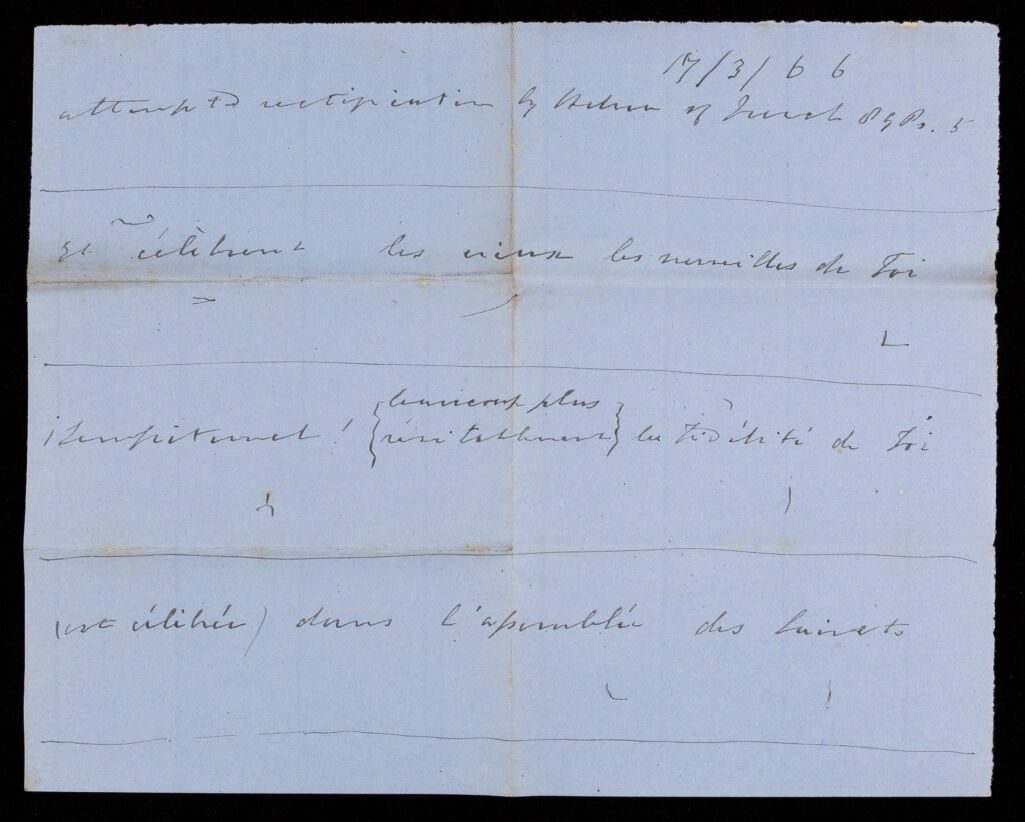 17/3/66
attempted rectification by Hebrew of French 89 Ps. 5
Et célèbrent les cieux les merveilles de Toi
Sempiternel! {beaucoup plus
véritablement} la Fidélité de Toi
(est célébrée) dans l'assemblée des Saints